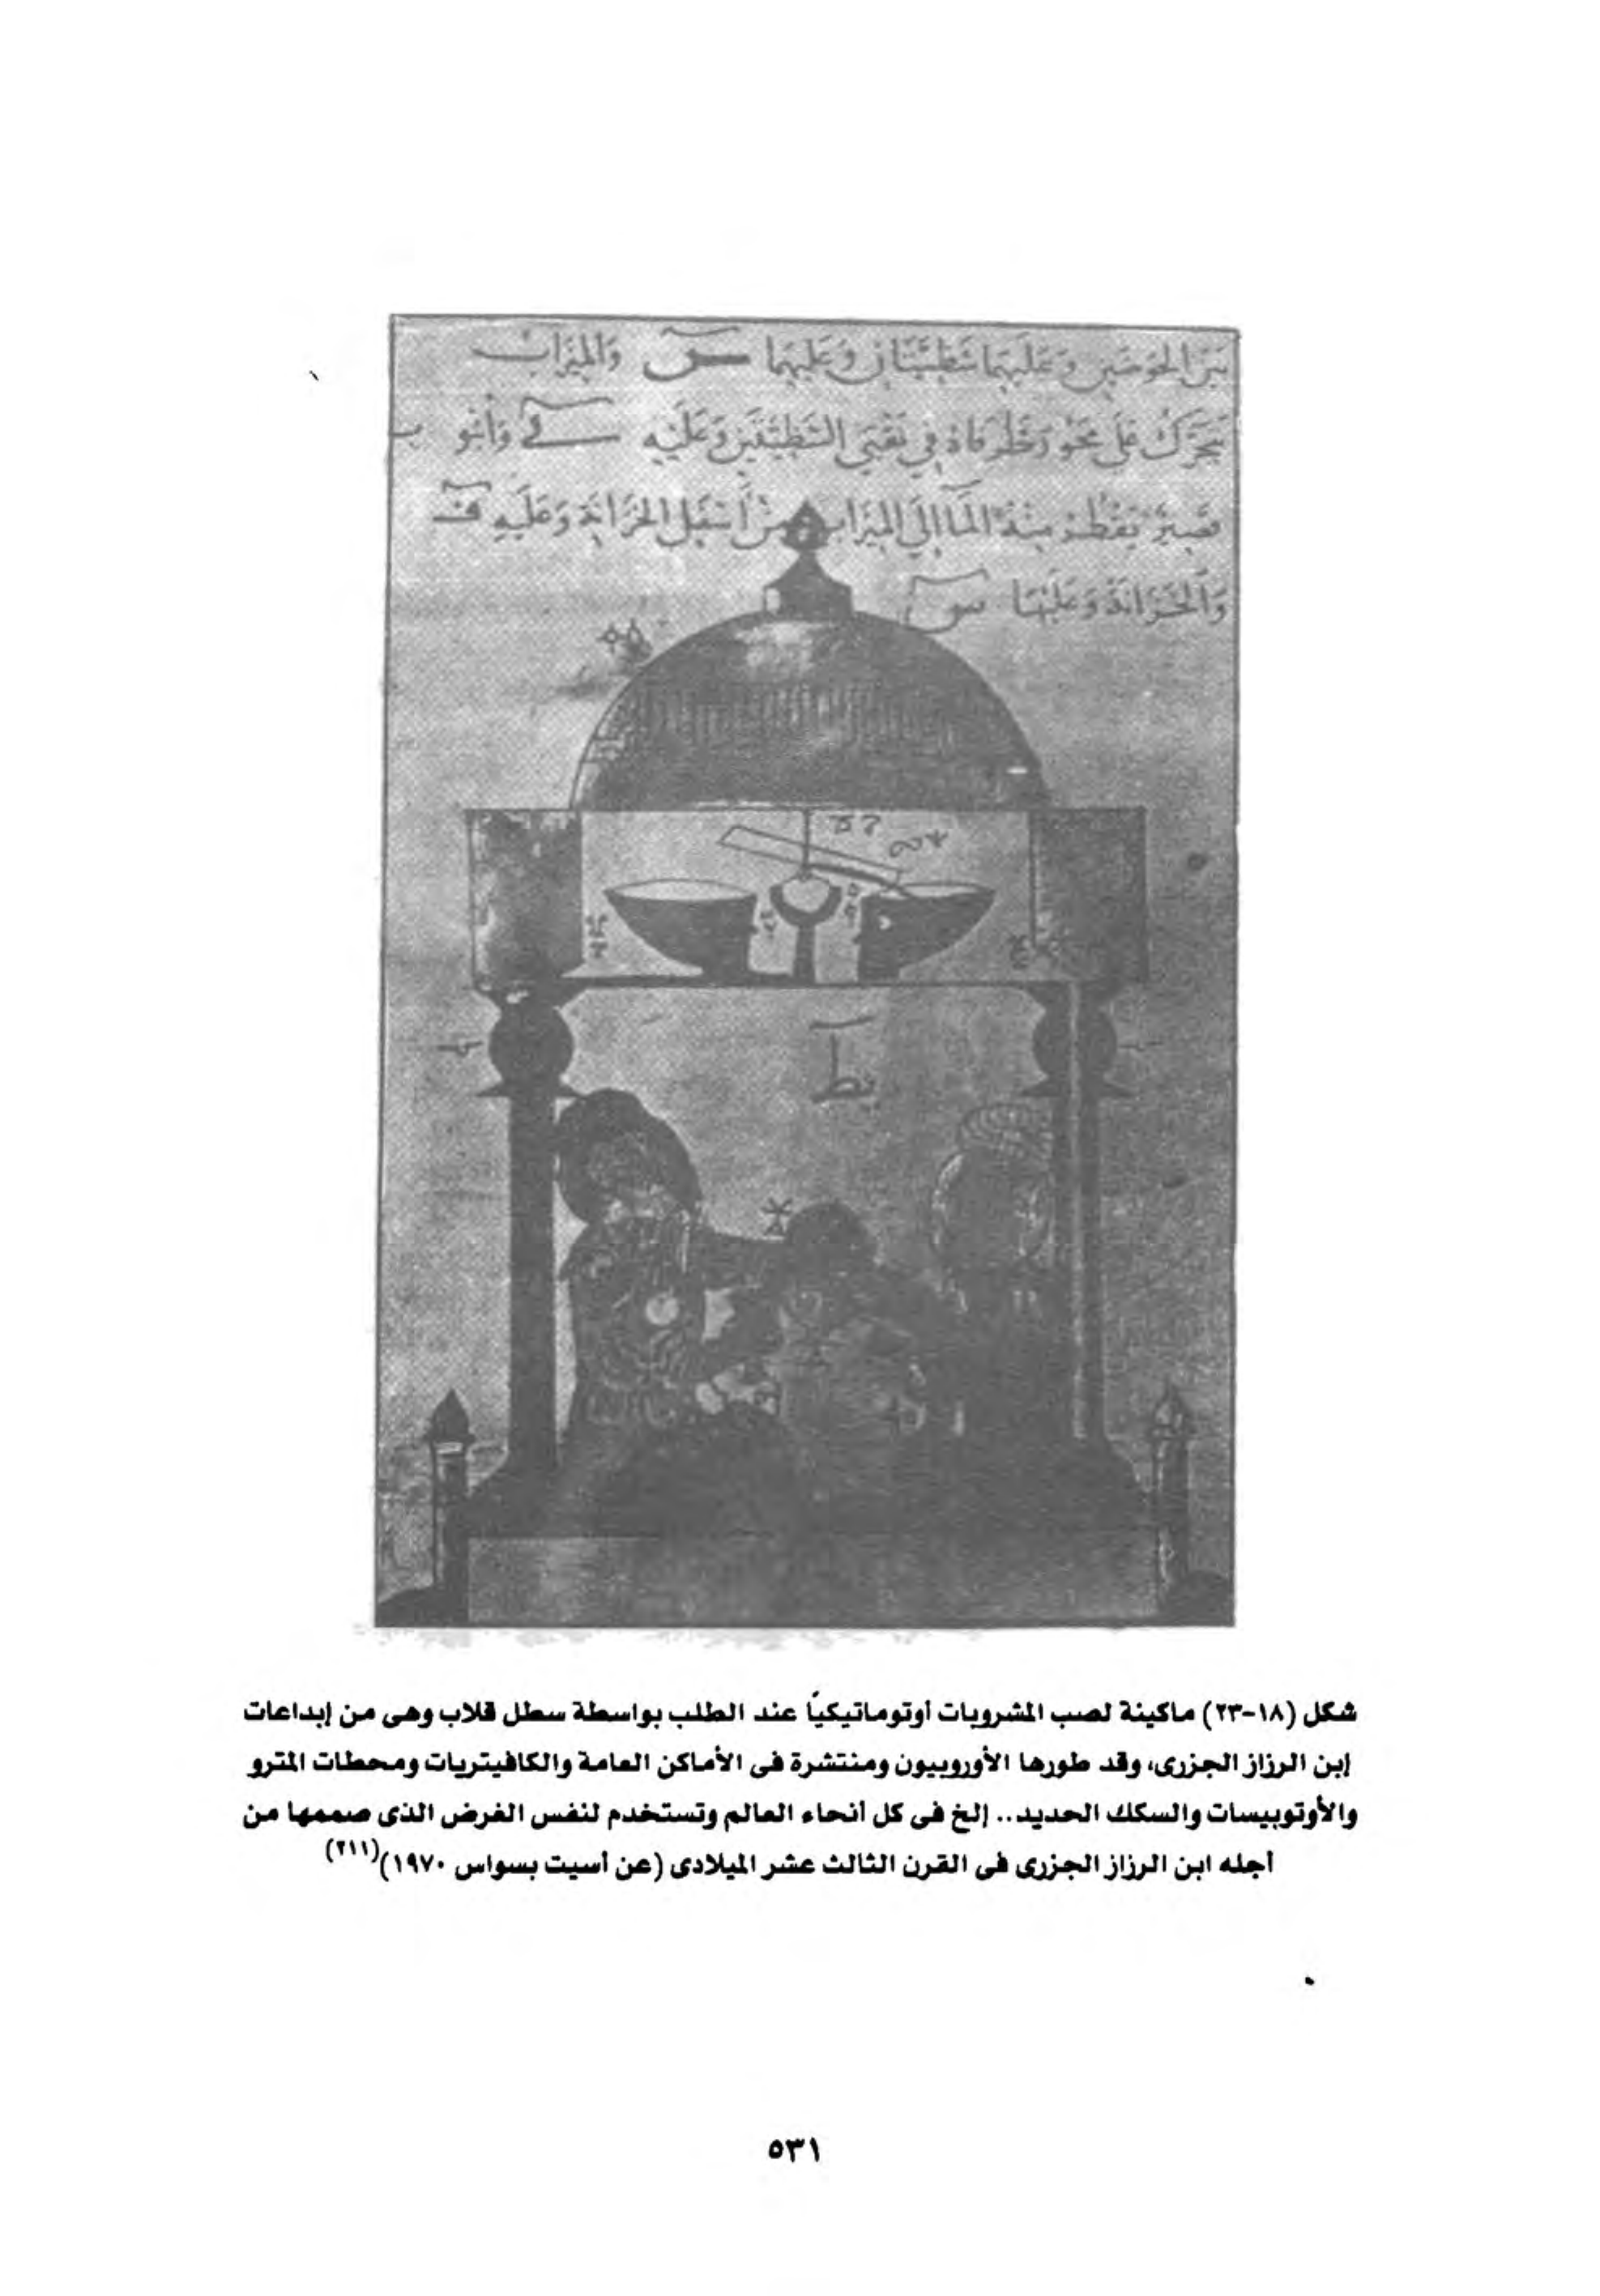 بين الحوضين وعليهما شظيتان وعليهما س والميزاب
يتحرك على محور طرفاه في ثقبي الشظيتين وعليه في وأنبوب
قصير يقطر منه الماء إلى الميزاب من أسفل الخزانة وعليه ف
والخزانة وعليها س
يط
شكل (١٨-٢٣) ماكينة لصب المشروبات أوتوماتيكيًا عند الطلب بواسطة سطل قلاب وهى من إبداعات
إبن الرزاز الجزرى، وقد طورها الأوروبيون ومنتشرة فى الأماكن العامة والكافيتريات ومحطات المترو
والأوتوبيسات والسكك الحديد.. إلخ فى كل أنحاء العالم وتستخدم لنفس الغرض الذى صممها من
أجله ابن الرزاز الجزرى فى القرن الثالث عشر الميلادى (عن أسيت بسواس ١٩٧٠)(٢١١)
٥٣١